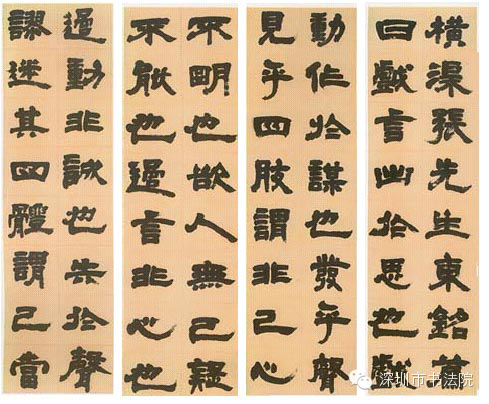 橫渠張先生東銘
曰戲言出於思也戲
動作於謀也發乎聲
見乎四肢謂非己心
不明也欲人無己疑
不能也過言非心也
過動非誠也失於聲
謬迷其四體謂己當
深圳市书法院